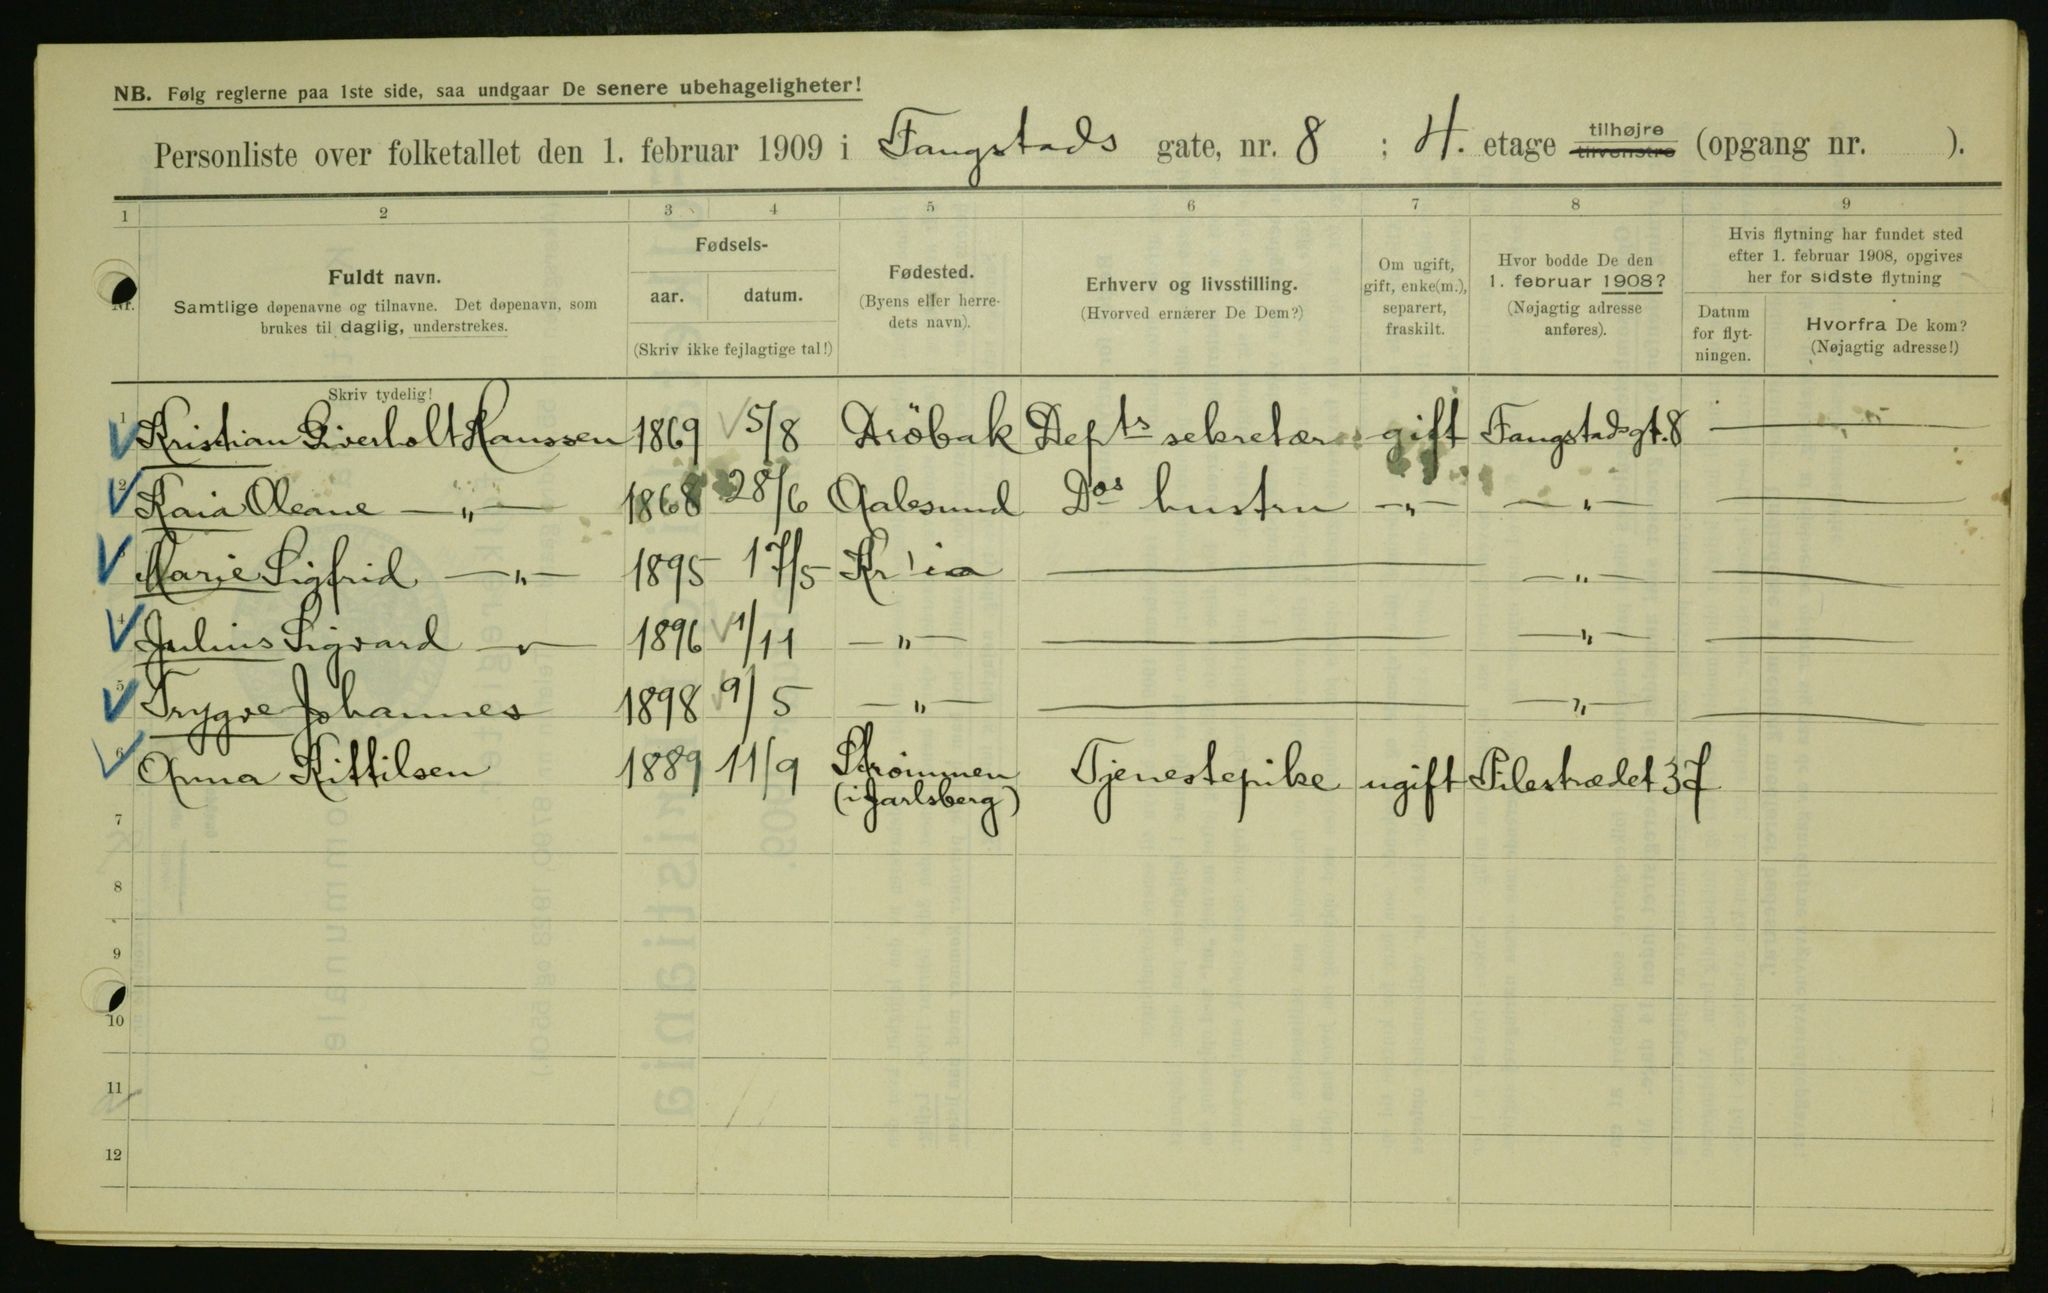 NB. Følg reglerne paa 1ste side, saa undgaar De senere ubehageligheter!
Personliste over folketallet den 1. februar 1909 i Fangstads gate, nr. 8 ; 4. etage tilhøjre tilvenstre (opgang nr. ).
1 2 3 4 5 6 7 8 9
Nr.
Fuldt navn.
Samtlige døpenavne og tilnavne. Det døpenavn, som
brukes til daglig, understrekes.
Fødsels-
aar. datum.
(Skriv ikke fejlagtige tal!)
Fødested.
(Byens eller herre-
dets navn).
Erhverv og livsstilling.
(Hvorved ernærer De Dem?)
Om ugift,
gift, enke(m.),
separert,
fraskilt.
Hvor bodde De den
1. februar 1908?
(Nøjagtig adresse
anføres).
Hvis flytning har fundet sted
efter 1. februar 1908, opgives
her for sidste flytning
Datum
for flyt-
ningen.
Hvorfra De kom?
(Nøjagtig adresse!)
Skriv tydelig!
1 Kristian Siverholt Hanssen 1869 5/8 Dröbak Depts sekretær gift Fangstadsgt. 8 —
2 Kaia Oleane —„— 1868 28/6 Aalesund Dos hustru —„— —„— —
3 Marie Sigfrid —„— 1895 17/5 Kr'ia — —„— —
4 Julius Sigvard —„— 1896 1/11 —„— — —„— —
5 Trygve Johannes 1898 9/5 —„— — —„— —
6 Anna Kittilsen 1889 11/9 Strömmen Tjenestepike ugift Pilestrædet 37
(i Jarlsberg)
7
8
9
10
11
12